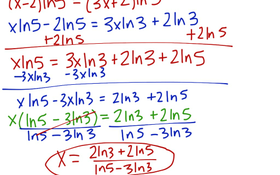 (x-2)ln5 = (3x+2)ln3
xln5-2ln5 = 3xln3+2ln3
+2ln5 +2ln5
xln5 = 3xln3+2ln3+2ln5
-3xln3 -3xln3
xln5-3xln3 = 2ln3+2ln5
x(ln5-3ln3) = 2ln3+2ln5
ln5-3ln3 ln5-3ln3
x = 2ln3+2ln5
ln5-3ln3